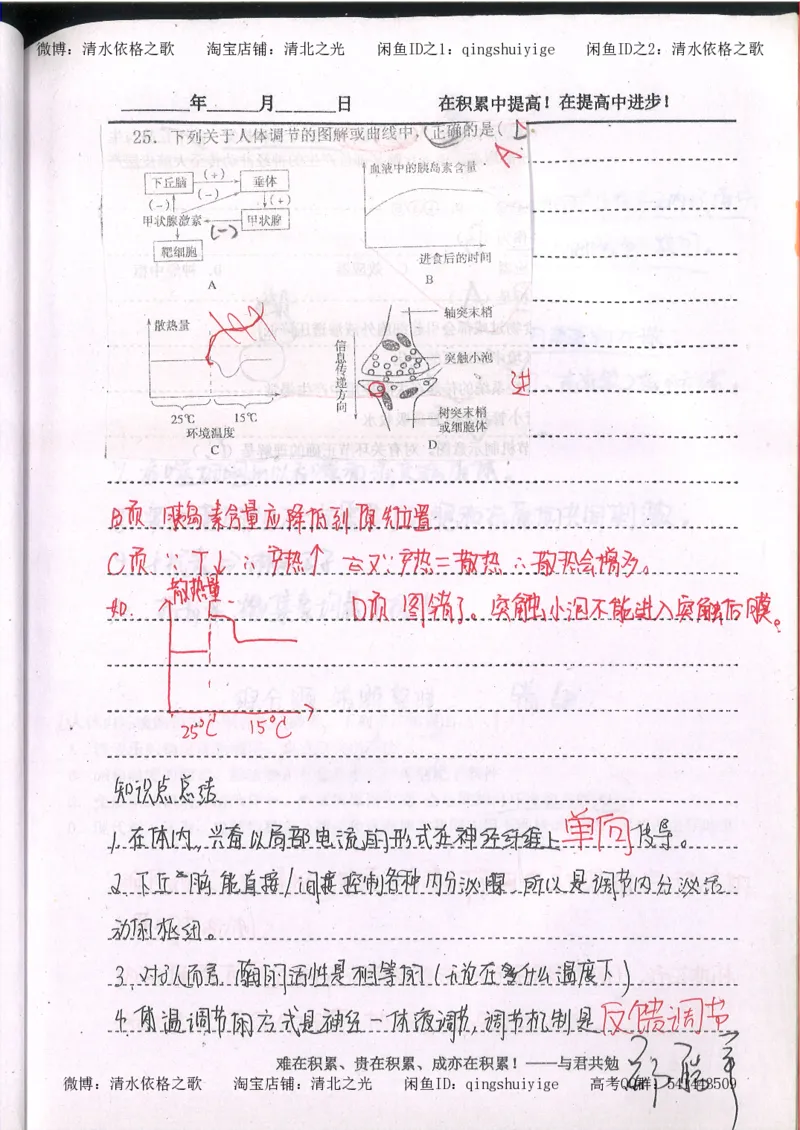 微博：清水依格之歌 淘宝店铺：清北之光 闲鱼ID之1：qingshuiyige 闲鱼ID之2：清水依格之歌
年 月 日 在积累中提高！在提高中进步！
25. 下列关于人体调节的图解或曲线中，（正确的是（
A.
下丘脑 (+) 垂体
(−) (−) (+)
甲状腺激素 甲状腺
(−)
靶细胞
A
血液中的胰岛素含量
进食后的时间
B
散热量
25℃ 15℃
环境温度
C
信息传递方向
轴突末梢
突触小泡
进
树突末梢
或细胞体
D
B项 胰岛素含量应降低到原先位置.
C项 ∵T↓ ∴产热↑ 又∵产热=散热 ∴散热会增多。
如. 散热量 D项 图错了。突触小泡不能进入突触后膜。
25℃ 15℃
知识点总结
1. 在体内，兴奋以局部电流的形式在神经纤维上单向传导。
2. 下丘脑能直接/间接控制各种内分泌腺 所以是调节内分泌活
动的枢纽。
3. 对人而言，酶的活性是相等的（无论在多什么温度下）
4. 体温调节的方式是神经－体液调节，调节机制是反馈调节
难在积累、贵在积累、成亦在积累！——与君共勉
微博：清水依格之歌 淘宝店铺：清北之光 闲鱼ID：qingshuiyige 高考QQ群：541413509